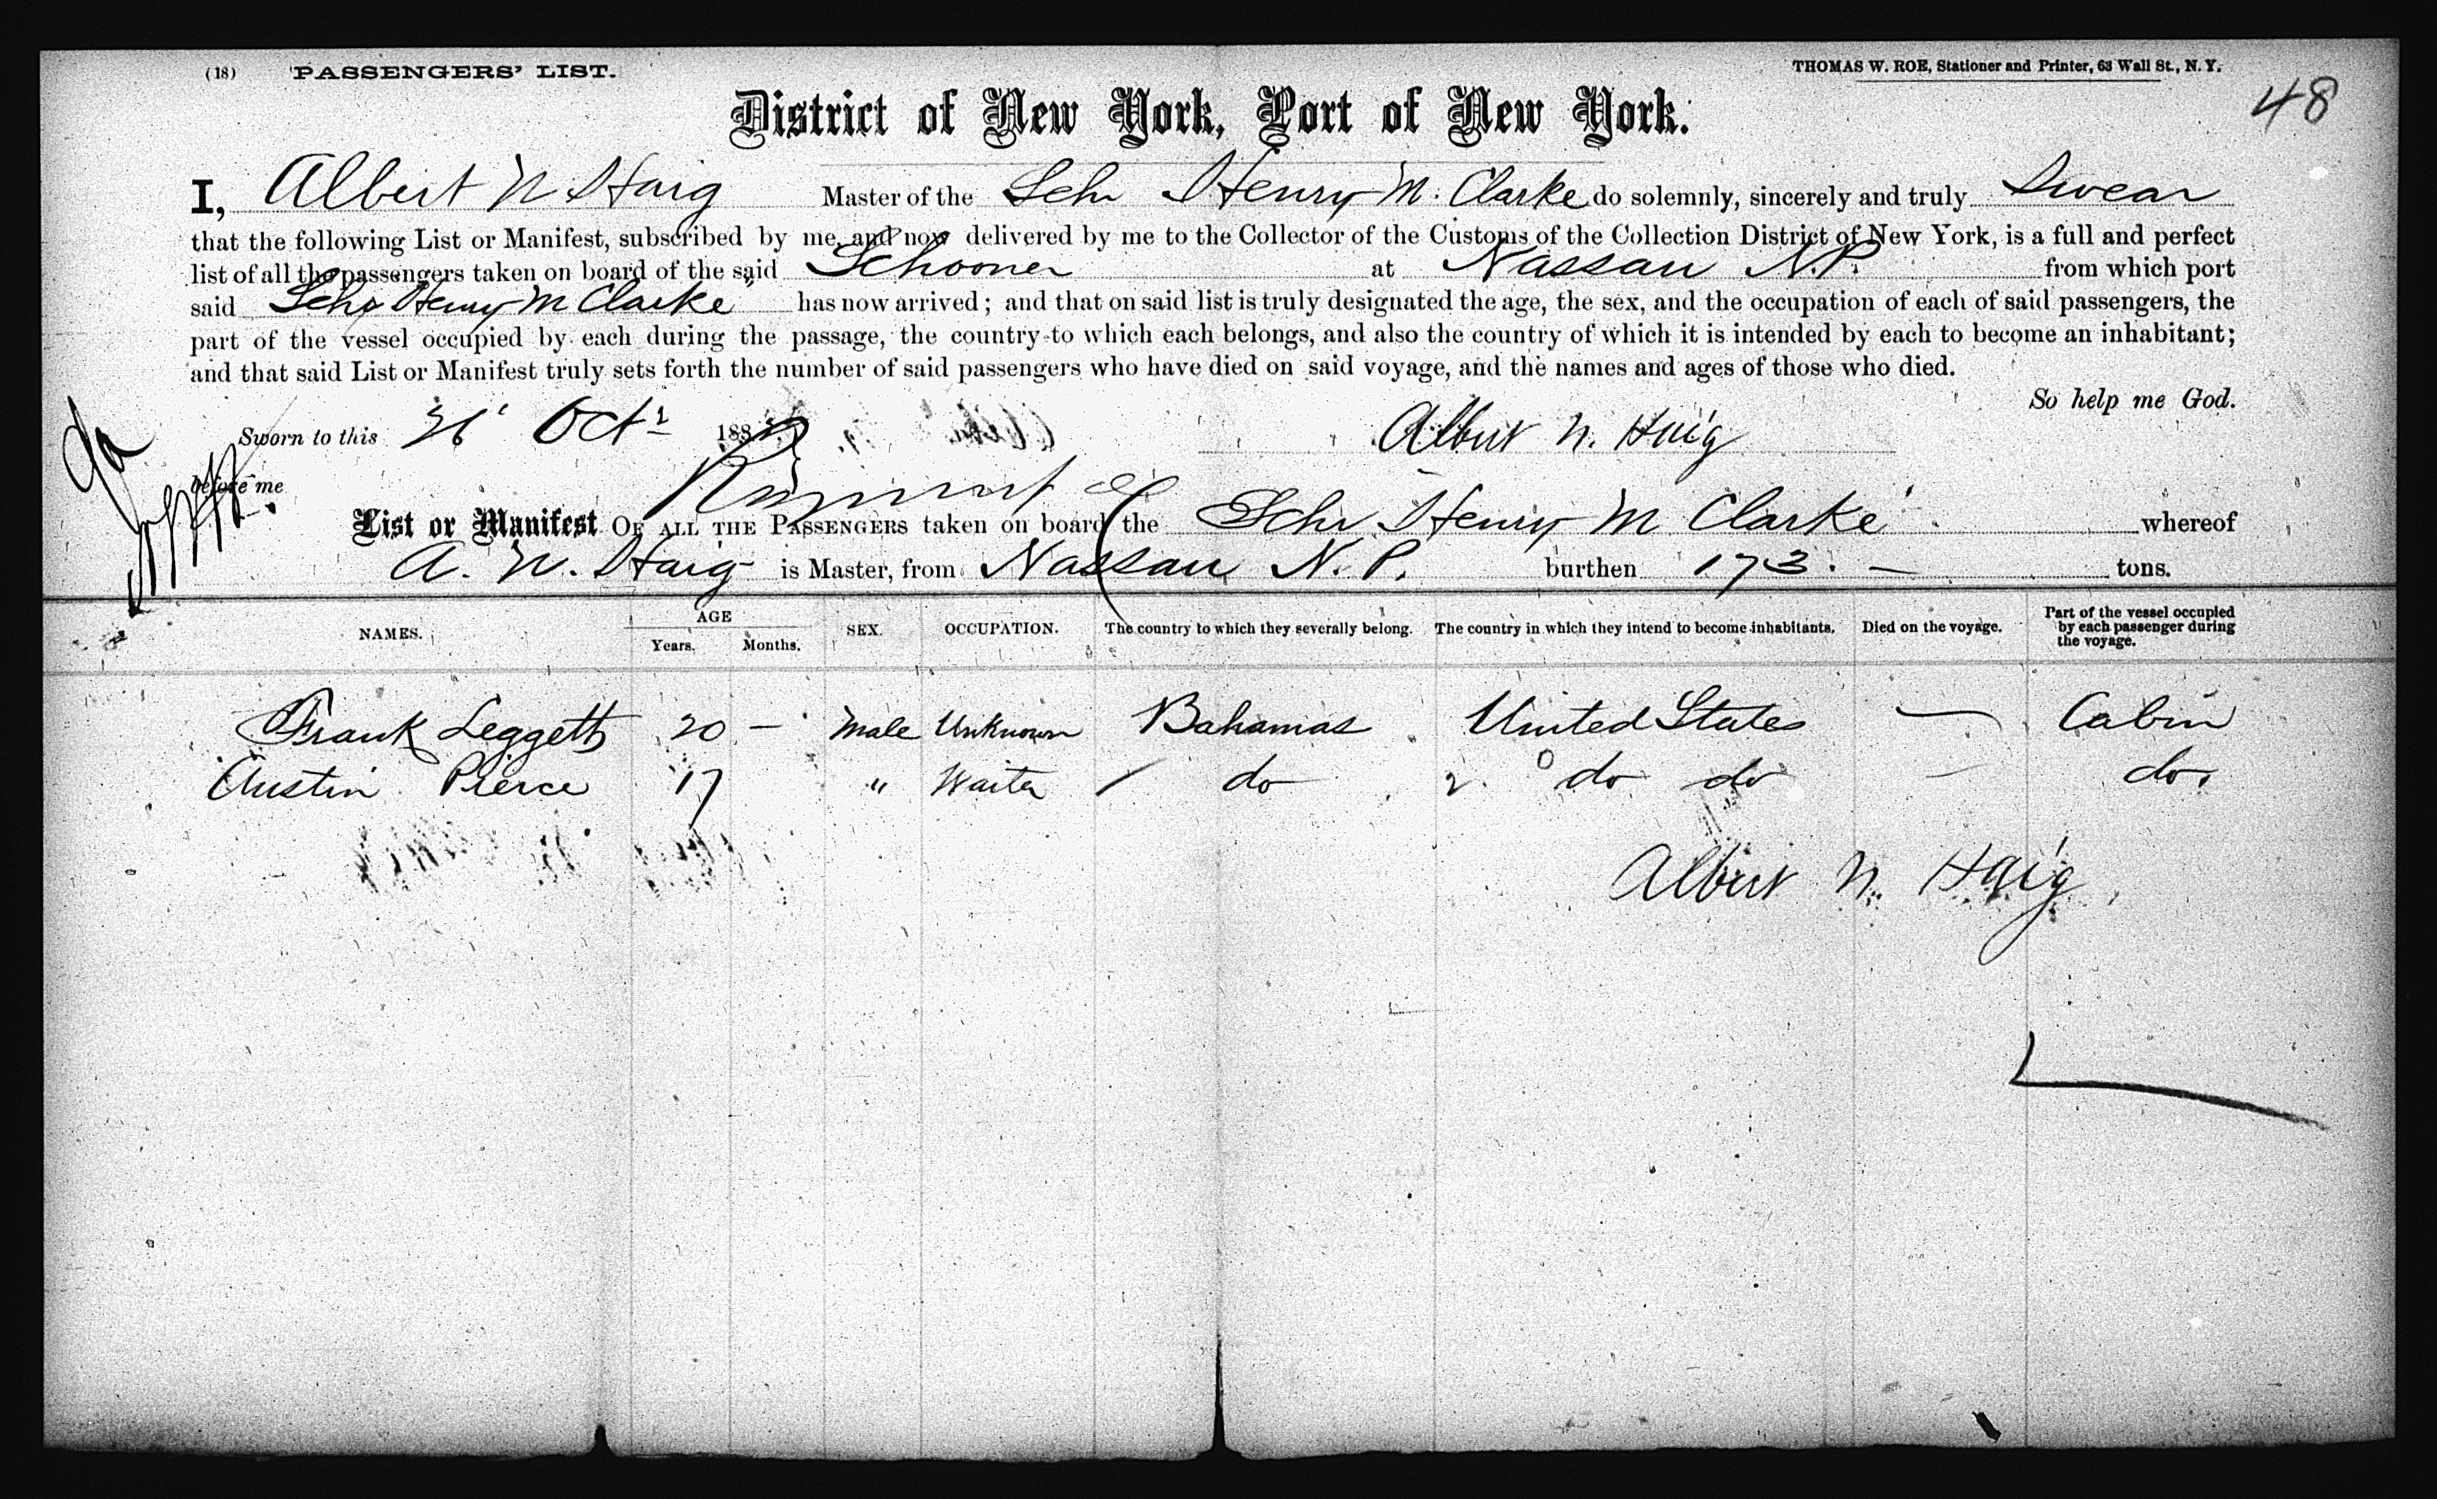 (18) PASSENGERS' LIST.
THOMAS W. ROE, Stationer and Printer, 63 Wall St., N. Y.
48
District of New York, Port of New York.
I, Albert N Haig Master of the Schr Henry M. Clarke do solemnly, sincerely and truly Swear
that the following List or Manifest, subscribed by me, and now delivered by me to the Collector of the Customs of the Collection District of New York, is a full and perfect
list of all the passengers taken on board of the said Schooner at Nassau N.P. from which port
said Schr Henry M Clarke has now arrived; and that on said list is truly designated the age, the sex, and the occupation of each of said passengers, the
part of the vessel occupied by each during the passage, the country to which each belongs, and also the country of which it is intended by each to become an inhabitant;
and that said List or Manifest truly sets forth the number of said passengers who have died on said voyage, and the names and ages of those who died.
So help me God.
Sworn to this Octr 188
Albert N. Haig
before me
List or Manifest OF ALL THE PASSENGERS taken on board the Schr Henry M Clarke whereof
A. N. Haig is Master, from Nassau N. P. burthen 173. — tons.
NAMES. AGE Years. Months. SEX. OCCUPATION. The country to which they severally belong. The country in which they intend to become inhabitants. Died on the voyage. Part of the vessel occupied by each passenger during the voyage.
Frank Leggett 20 — Male Unknown Bahamas United States — Cabin
Austin Pierce 17 " Waiter / do 2 do do — do.
Albert N. Haig